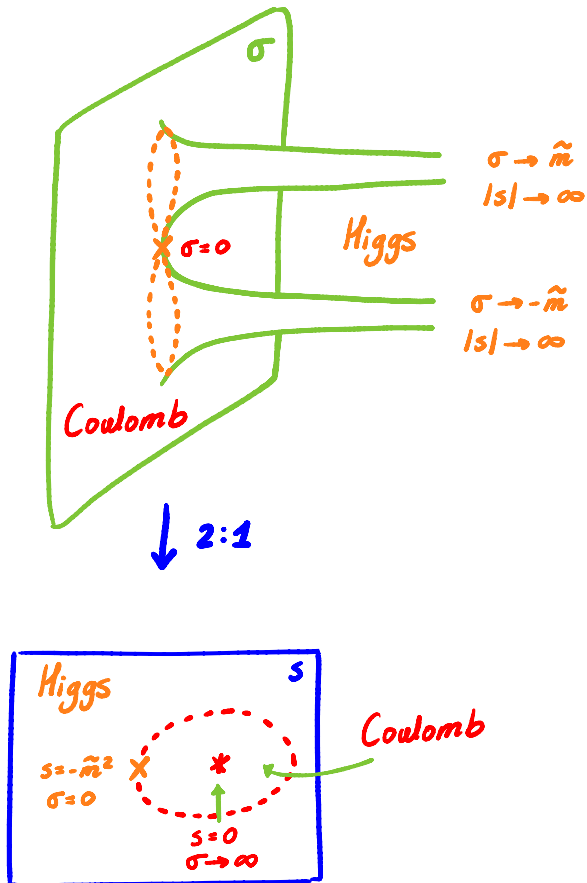 σ
σ → m̃
|s| → ∞
Higgs
σ=0
σ → -m̃
|s| → ∞
Coulomb
2:1
s
Higgs
Coulomb
s=-m̃²
σ=0
s=0
σ→∞